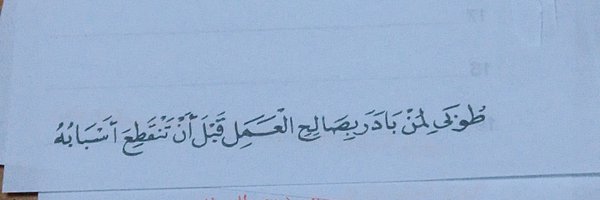 طُوبَى لِمَنْ بَادَرَ بِصَالِحِ الْعَمَلِ قَبْلَ أَنْ تَنْقَطِعَ أَسْبَابُهُ